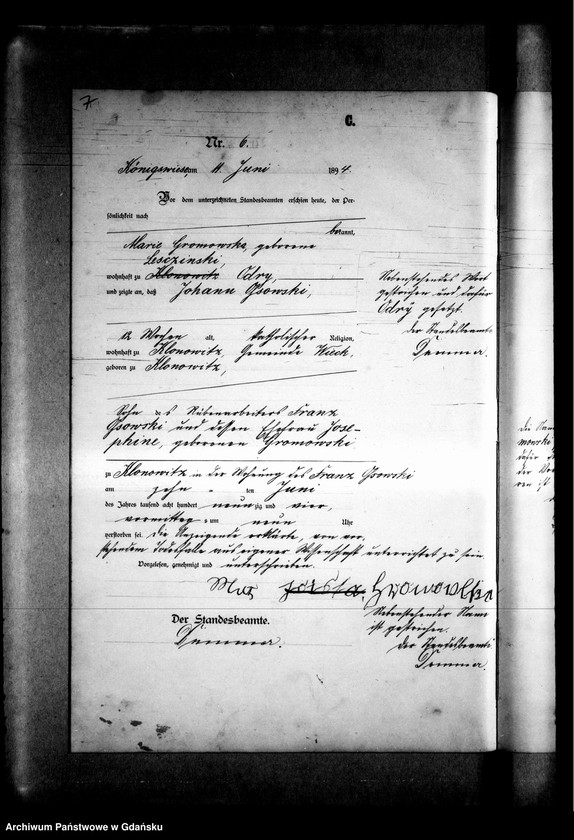 7.
C.
Nr. 6.
Königswiese am 11. Juni 1894.
Vor dem unterzeichneten Standesbeamten erschien heute, der Per-
sönlichkeit nach
bekannt,
Marie Gromowska, geborene
Lesczinski,
wohnhaft zu Klonowitz Odry,
und zeigte an, daß Johann Ossowski,
12 Wochen alt, katholischer Religion,
wohnhaft zu Klonowitz, Gemeinde Wieck,
geboren zu Klonowitz,
Sohn des Rübenarbeiters Franz
und dessen Ehefrau Jose-
phine, geborenen Gromowski
zu Klonowitz in der Wohnung des Franz
am zehnten Juni
des Jahres tausend acht hundert neunzig und vier,
vormittags um neun Uhr
verstorben sei. Die Anzeigende erklärte, von vor-
stehendem Todesfalle aus eigener Wissenschaft unterrichtet zu sein.
Vorgelesen, genehmigt und unterschrieben.
Der Standesbeamte.
Demmer.
Nebenstehendes Wort
gestrichen und dafür
Odry gesetzt.
der Standesbeamte
Demmer.
Nebenstehender Name
ist gestrichen.
der Standesbeamte
Demmer.
Archiwum Państwowe w Gdańsku